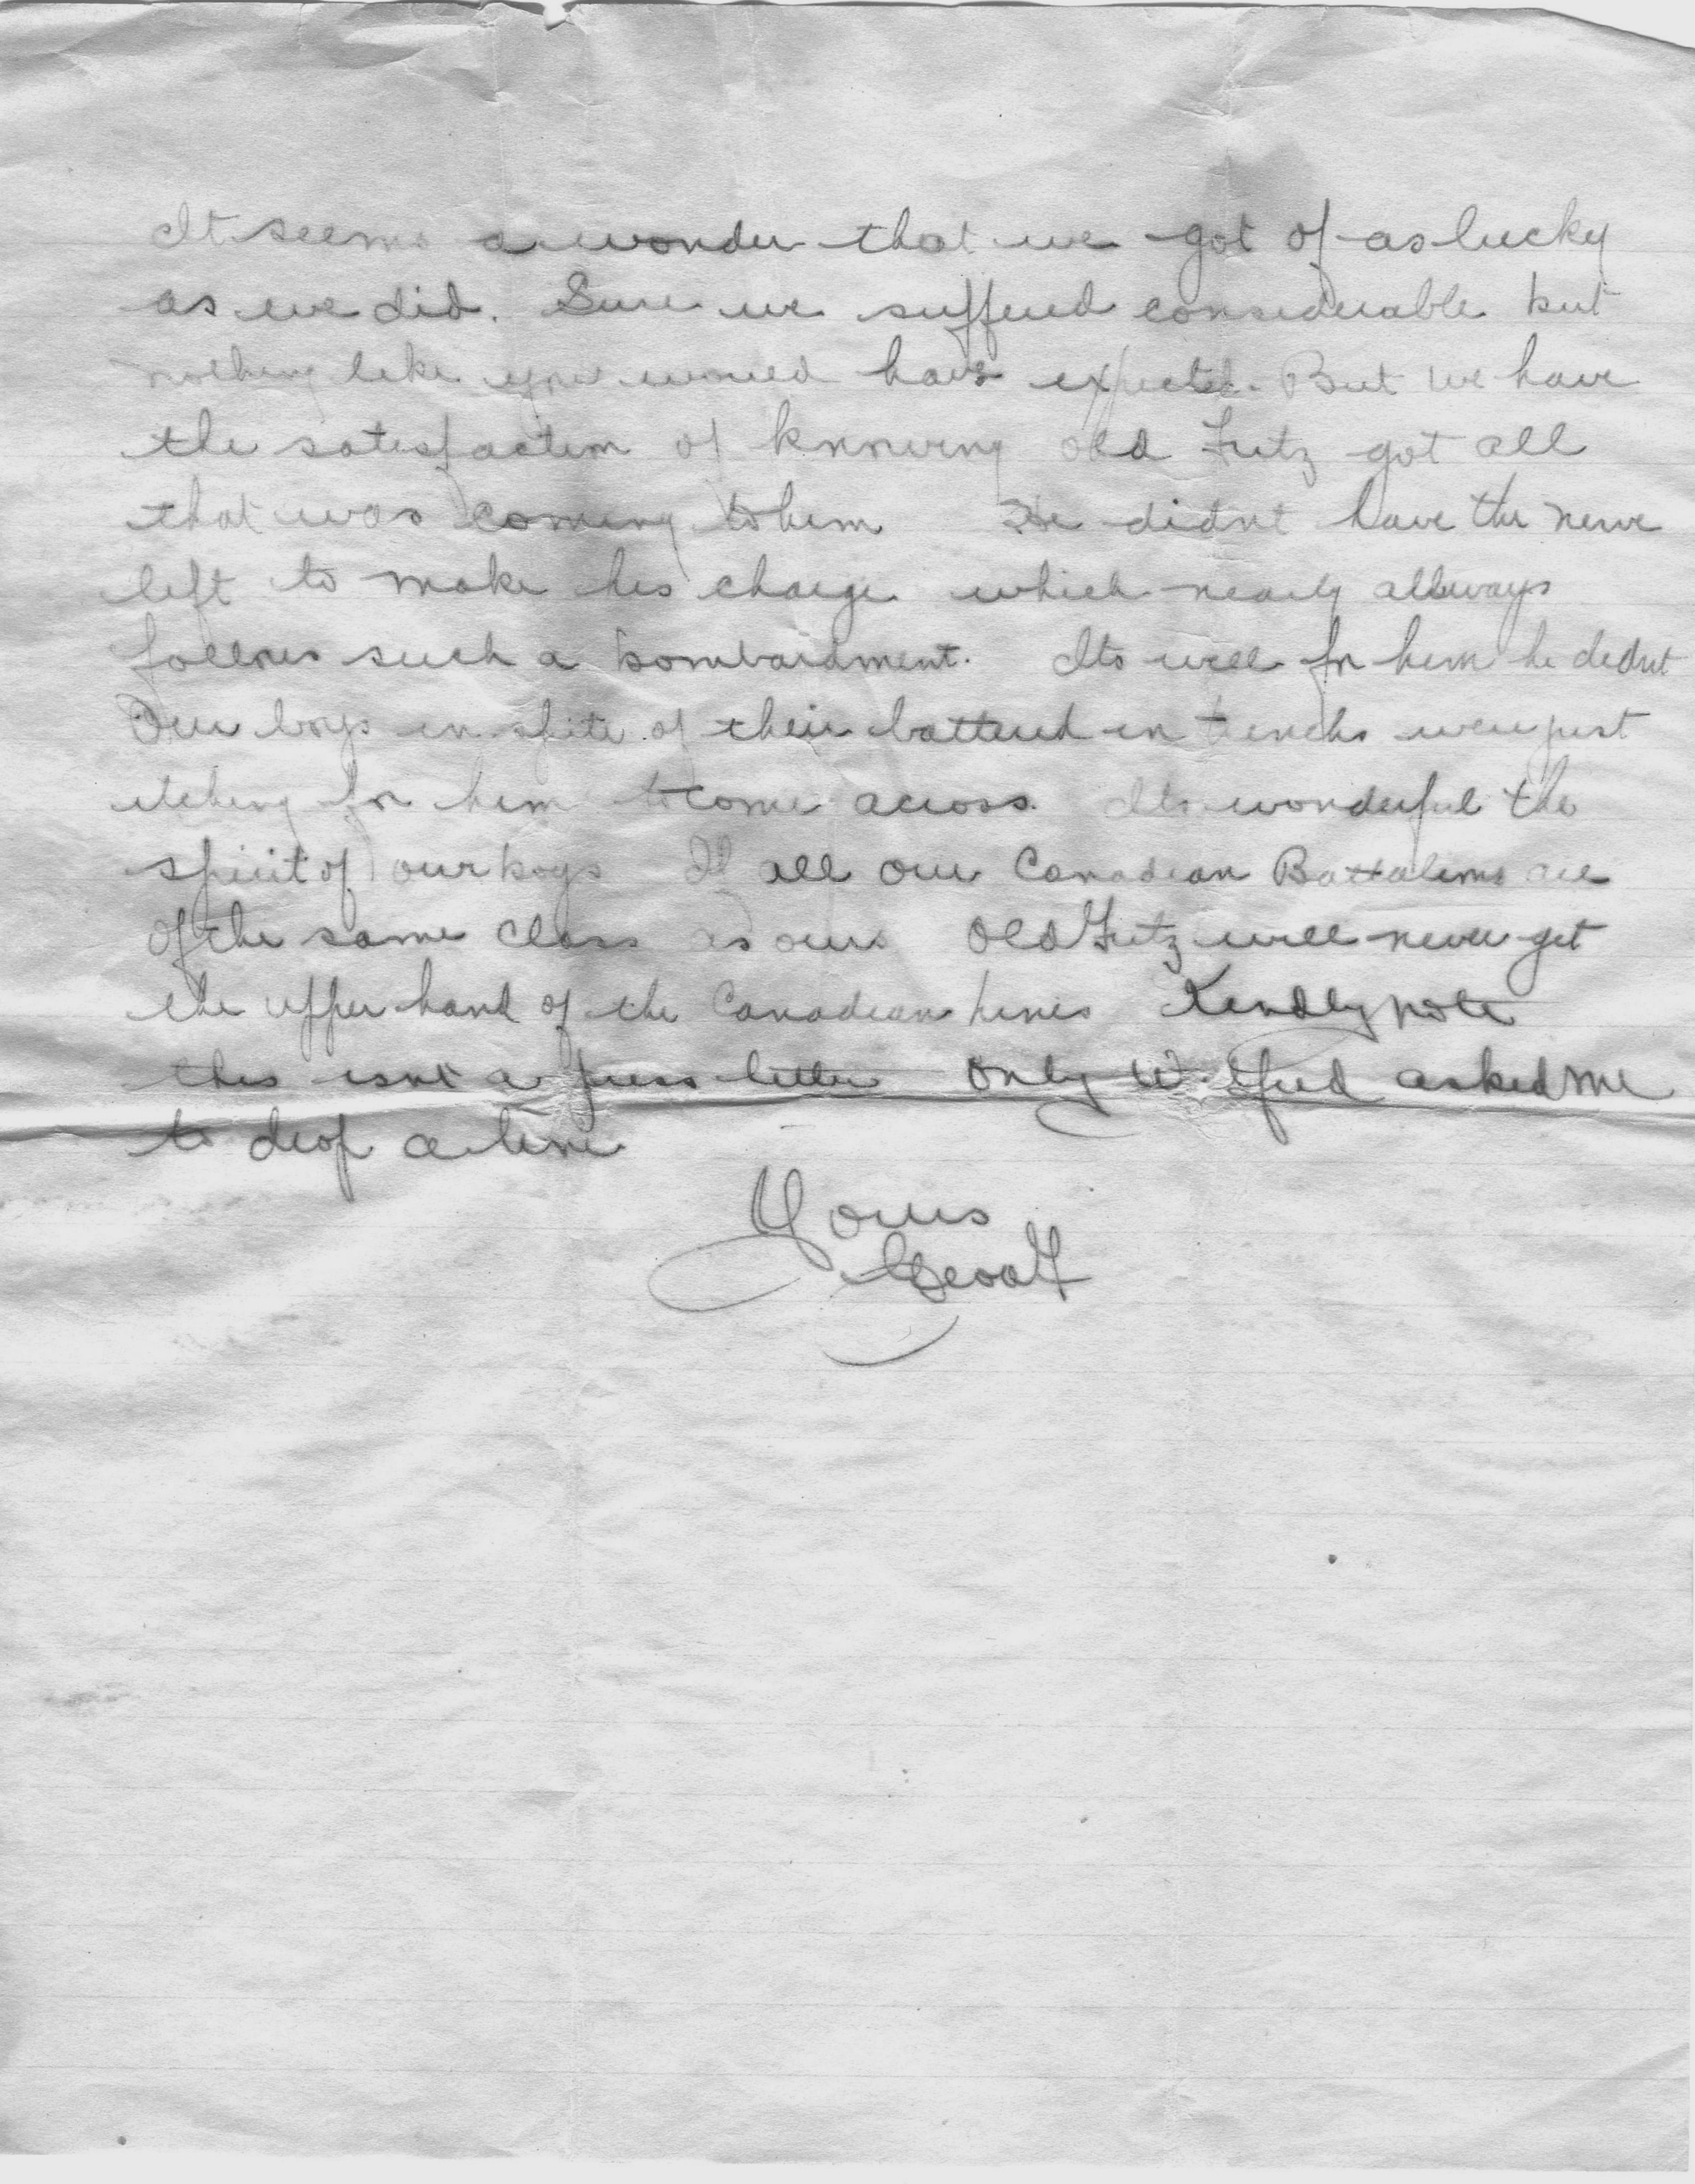 It seems a wonder that we got of as lucky
as we did. Sure we suffered considerable but
nothing like you would have expected. But we have
the satisfaction of knowing old Fritz got all
that was coming to him He didnt have the nerve
left to make his charge which nearly allways
follows such a bombardment. Its well for him he didnt
Our boys in spite of their battered in trenchs were just
itching for him to come across. Its wonderful the
spirit of our boys If all our Canadian Battalions are
of the same class as ours Old Fritz will never get
the upper hand of the Canadian lines Kindly note
this isnt a press letter only Wilfred asked me
to drop a line
Yours